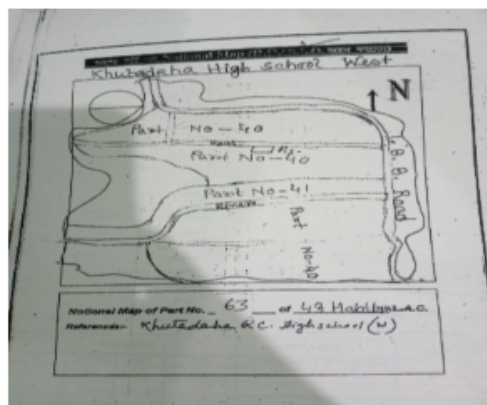 Khutadaha High School West
N
Part No - 40
Part No - 40
Part No - 41
Part No - 40
B. B. Road
Notional Map of Part No. 63 of 43
References:- Khutadaha R.C. High school (W)